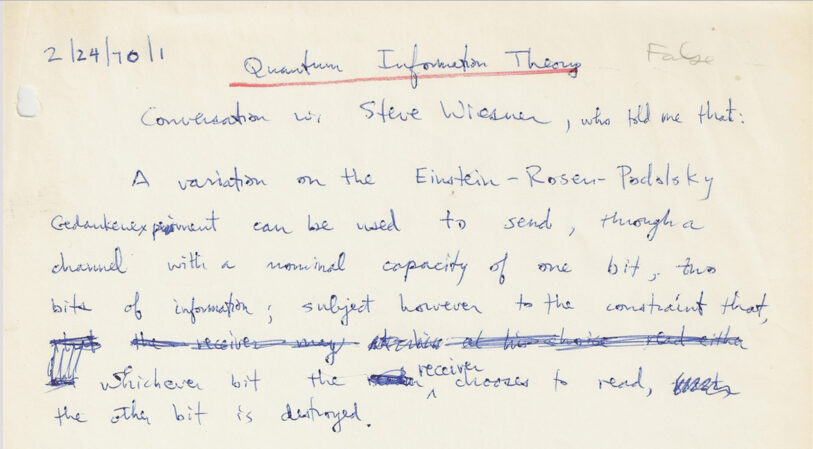 2/24/70/1
Quantum Information Theory False
Conversation w. Steve Wiesner, who told me that:
A variation on the Einstein-Rosen-Podolsky
Gedankenexperiment can be used to send, through a
channel with a nominal capacity of one bit, two
bits of information; subject however to the constraint that,
that the receiver may at his choice read either
whichever bit the receiver chooses to read,
the other bit is destroyed.